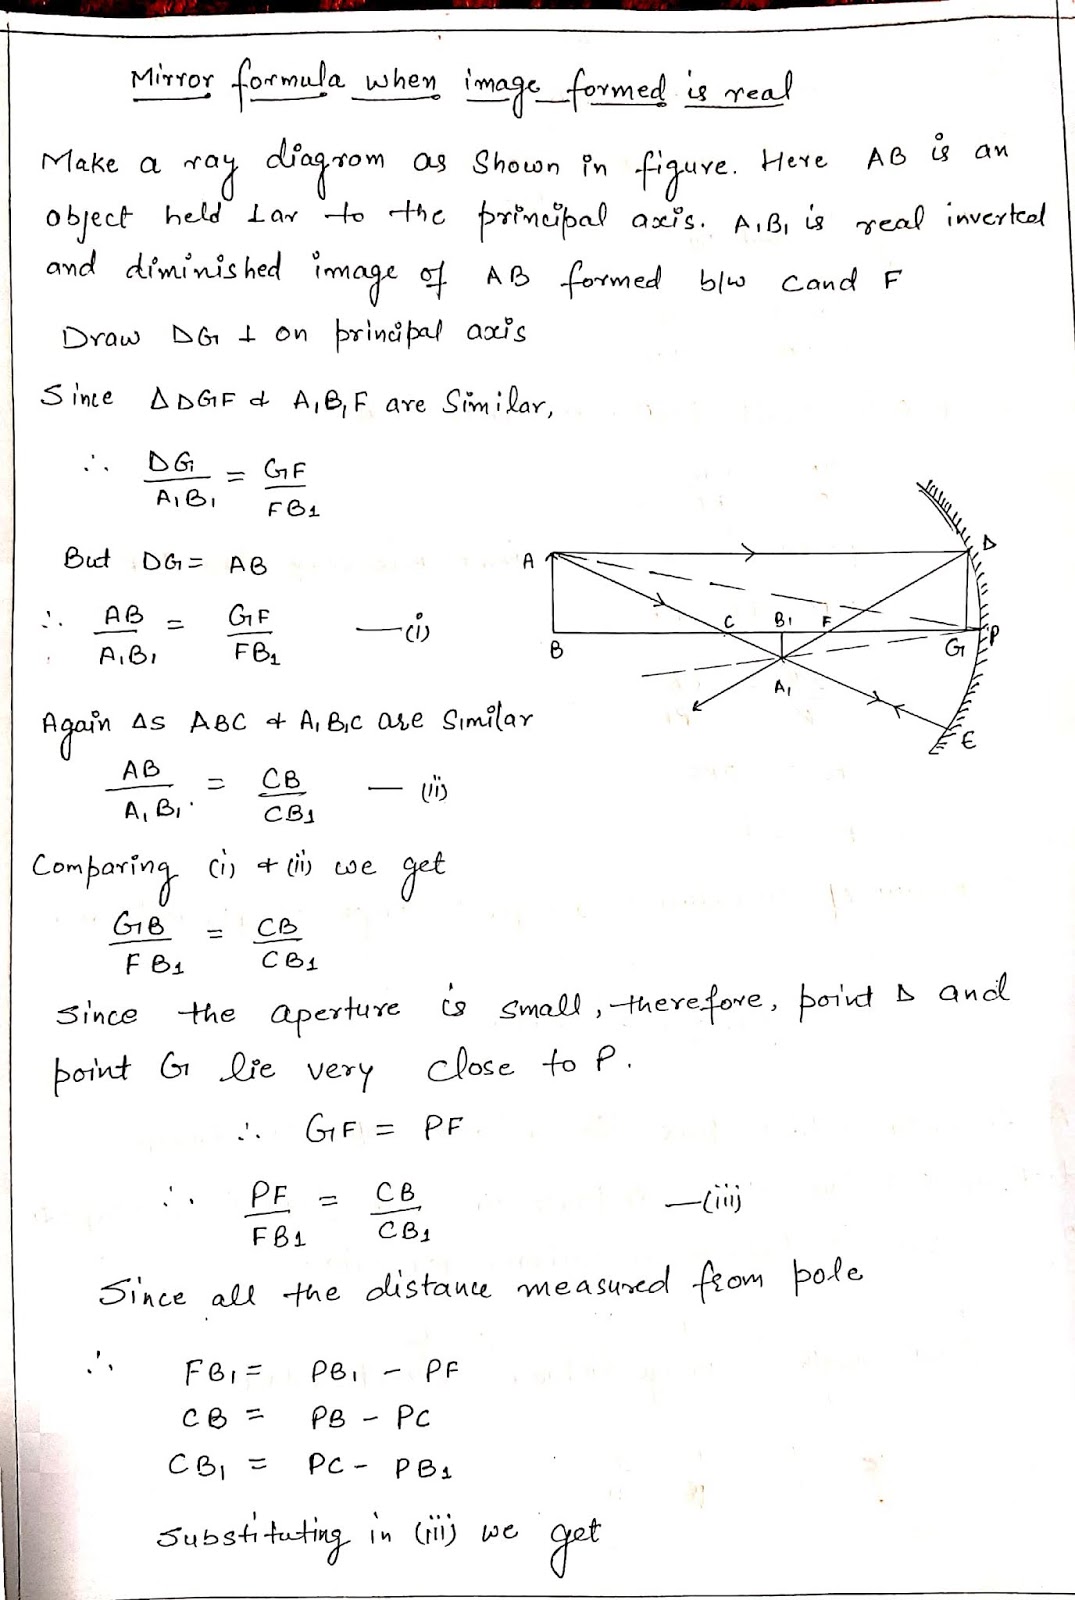 Mirror formula when image formed is real
Make a ray diagram as shown in figure. Here AB is an
object held Lar to the principal axis. A₁B₁ is real inverted
and diminished image of AB formed b/w C and F
Draw DG ⊥ on principal axis
Since ΔDGF & A₁B₁F are Similar,
∴ DG/A₁B₁ = GF/FB₁
But DG = AB
∴ AB/A₁B₁ = GF/FB₁ —(i)
A
D
C
B₁
F
B
G
P
A₁
E
Again Δs ABC & A₁B₁C are similar
AB/A₁B₁ = CB/CB₁ —(ii)
Comparing (i) & (ii) we get
GB/FB₁ = CB/CB₁
Since the aperture is small, therefore, point D and
point G lie very close to P.
∴ GF = PF
∴ PF/FB₁ = CB/CB₁ —(iii)
Since all the distance measured from pole
∴ FB₁ = PB₁ - PF
CB = PB - PC
CB₁ = PC - PB₁
Substituting in (iii) we get